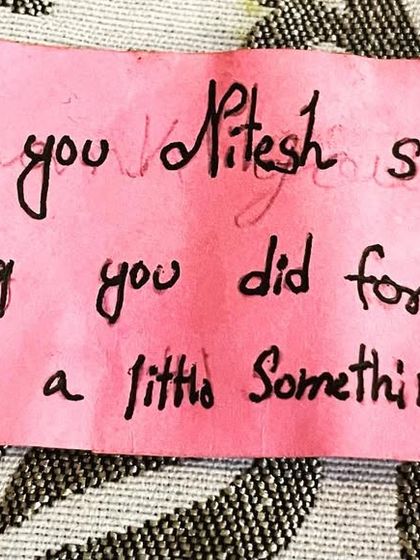 you Nitesh s
g you did for
a little Somethi